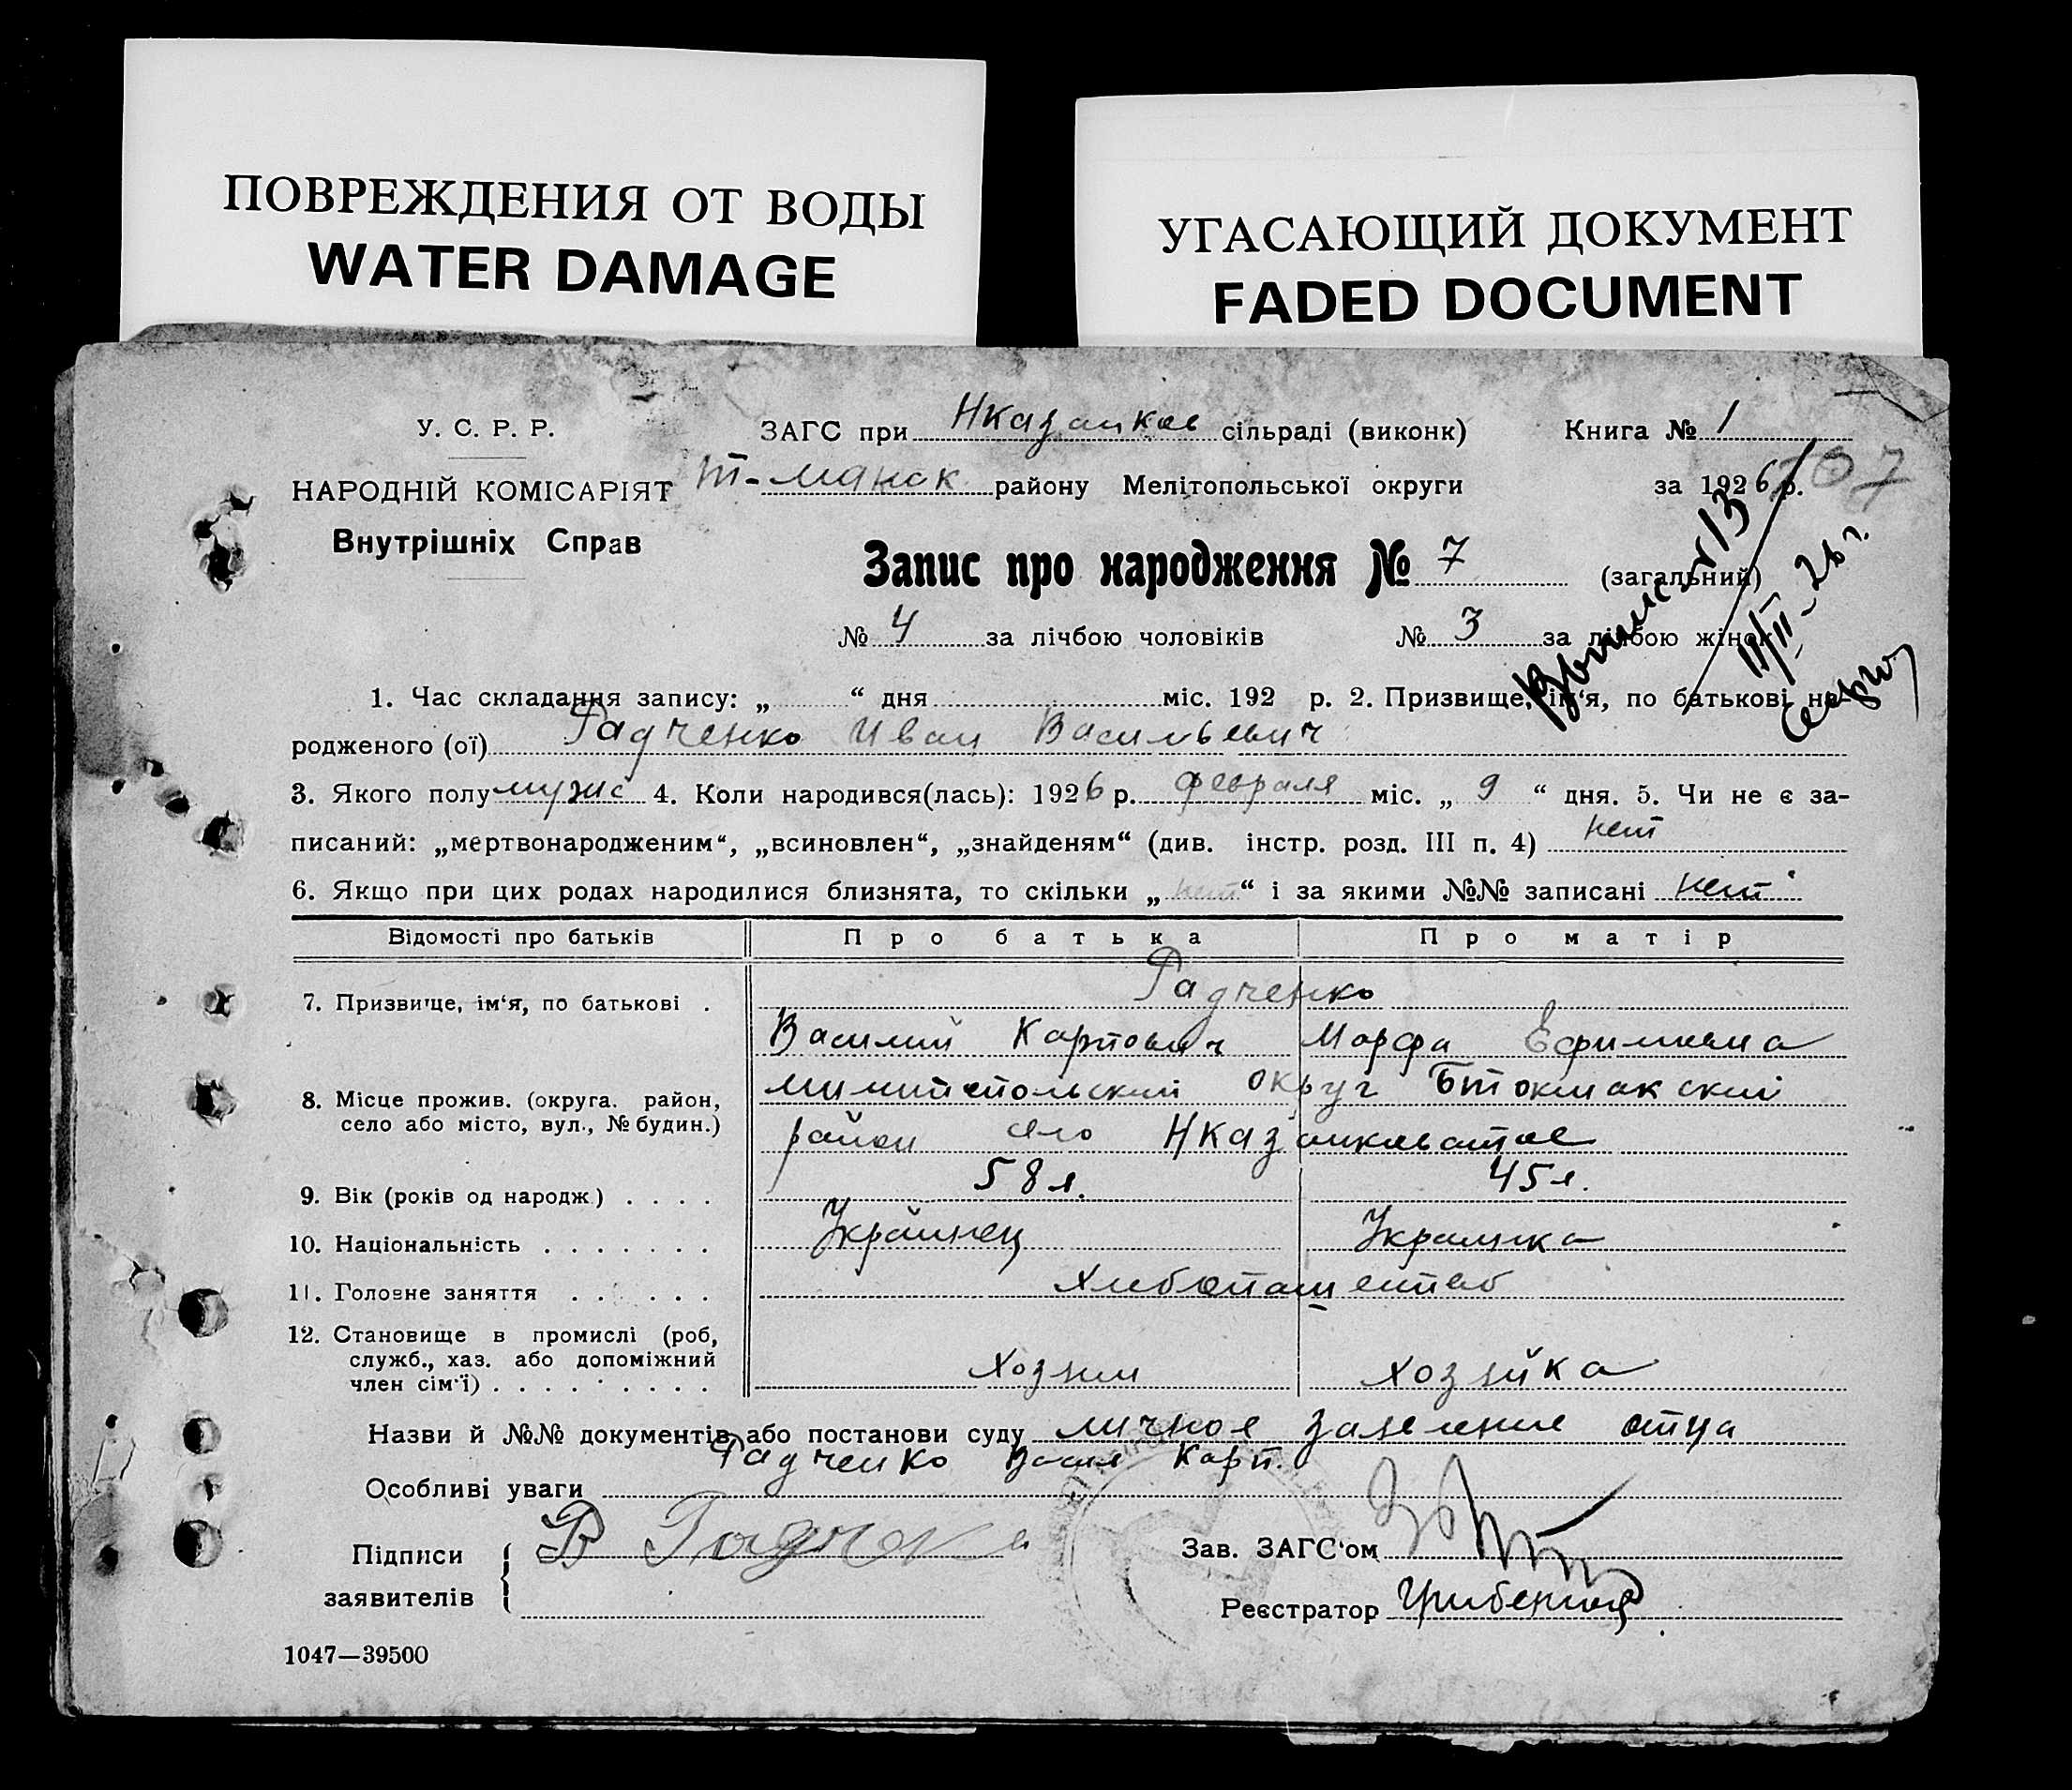 ПОВРЕЖДЕНИЯ ОТ ВОДЫ
WATER DAMAGE
УГАСАЮЩИЙ ДОКУМЕНТ
FADED DOCUMENT
У. С. Р. Р.
ЗАГС при Нказанков сільраді (виконк) Книга № 1
НАРОДНІЙ КОМІСАРІЯТ району Мелітопольської округи за 1926 р. 107
Внутрішніх Справ
Запис про народження № 7 (загальний)
№ 4 за лічбою чоловіків № 3 за лічбою жінок
1. Час складання запису: „ “ дня міс. 192 р. 2. Призвище, ім‘я, по батькові на-
родженого (ої) Радченко Иван Васильевич
3. Якого полу мужс 4. Коли народився(лась): 1926 р. февраля міс. „ 9 “ дня. 5. Чи не є за-
писаний: „мертвонародженим“, „всиновлен“, „знайденям“ (див. інстр. розд. III п. 4) нет
6. Якщо при цих родах народилися близнята, то скільки „ нет “ і за якими №№ записані нет
Відомості про батьків Про батька Про матір
7. Призвище, ім‘я, по батькові . Радченко
Василий Карпович Марфа Ефимовна
8. Місце прожив. (округа. район, село або місто, вул., № будин.) милитопольский округ Бтокмакский
район село Нказанковатое
9. Вік (років од народж.) . . . . 58 л. 45 л.
10. Національність . . . . . . . Украинец Украинка
11. Головне заняття . . . . . . Хлебопашеством
12. Становище в промислі (роб,
служб., хаз. або допоміжний
член сім‘ї) . . . . . . . . . Хозяин хозяйка
Назви й №№ документів або постанови суду личное заявление отца
Радченко Васил Карп.
Особливі уваги
Підписи
заявителів
В Радченко
Зав. ЗАГС‘ом
Реєстратор
1047—39500